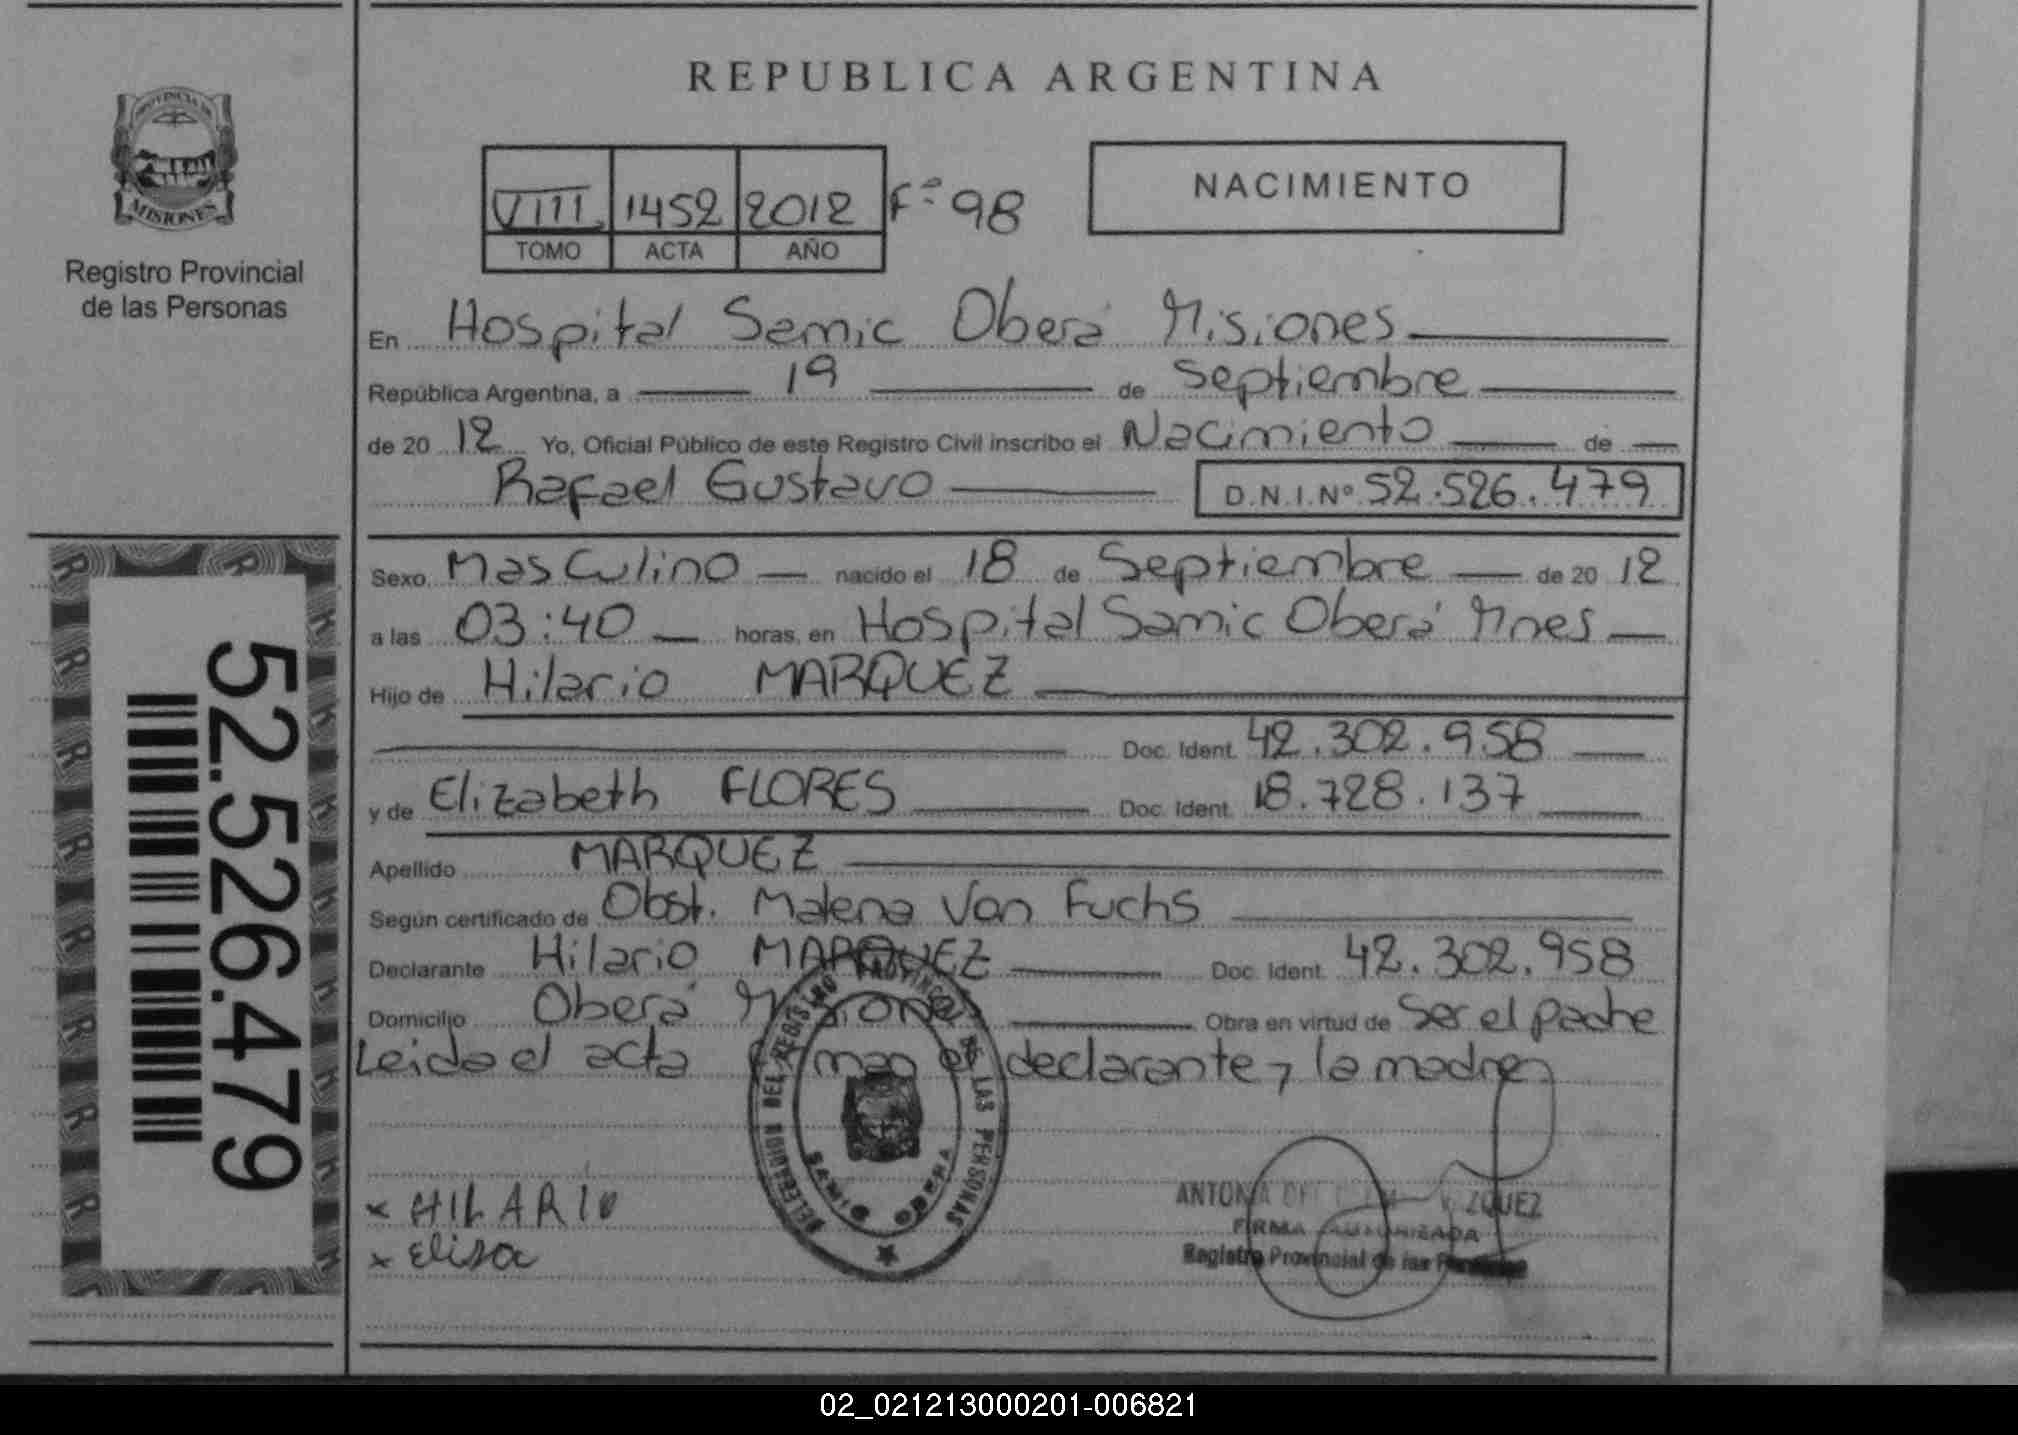 REPUBLICA ARGENTINA
PROVINCIA DE
MISIONES
Registro Provincial
de las Personas
VIII 1452 2012 Fº 98
TOMO ACTA AÑO
NACIMIENTO
En Hospital Samic Oberá Misiones
República Argentina, a 19 de Septiembre
de 20 12 Yo, Oficial Público de este Registro Civil inscribo el Nacimiento de
Rafael Gustavo D.N.I.Nº 52.526.479
Sexo Masculino nacido el 18 de Septiembre de 20 12
a las 03:40 horas, en Hospital Samic Oberá Mnes
Hijo de Hilario MARQUEZ
Doc. Ident. 42.302.958
y de Elizabeth FLORES Doc. Ident. 18.728.137
Apellido MARQUEZ
Según certificado de Obst. Malena Von Fuchs
Declarante Hilario MARQUEZ Doc. Ident. 42.302.958
Domicilio Oberá Misiones Obra en virtud de ser el padre
Leida el acta firman el declarante y la madre
52.526.479
x HILARIO
x Elisa
DELEGACION DEL REGISTRO PROVINCIAL DE LAS PERSONAS
SAMIC OBERA
ANTONIA ZQUEZ
FIRMA AUTORIZADA
Registro Provincial de las Personas
02_021213000201-006821